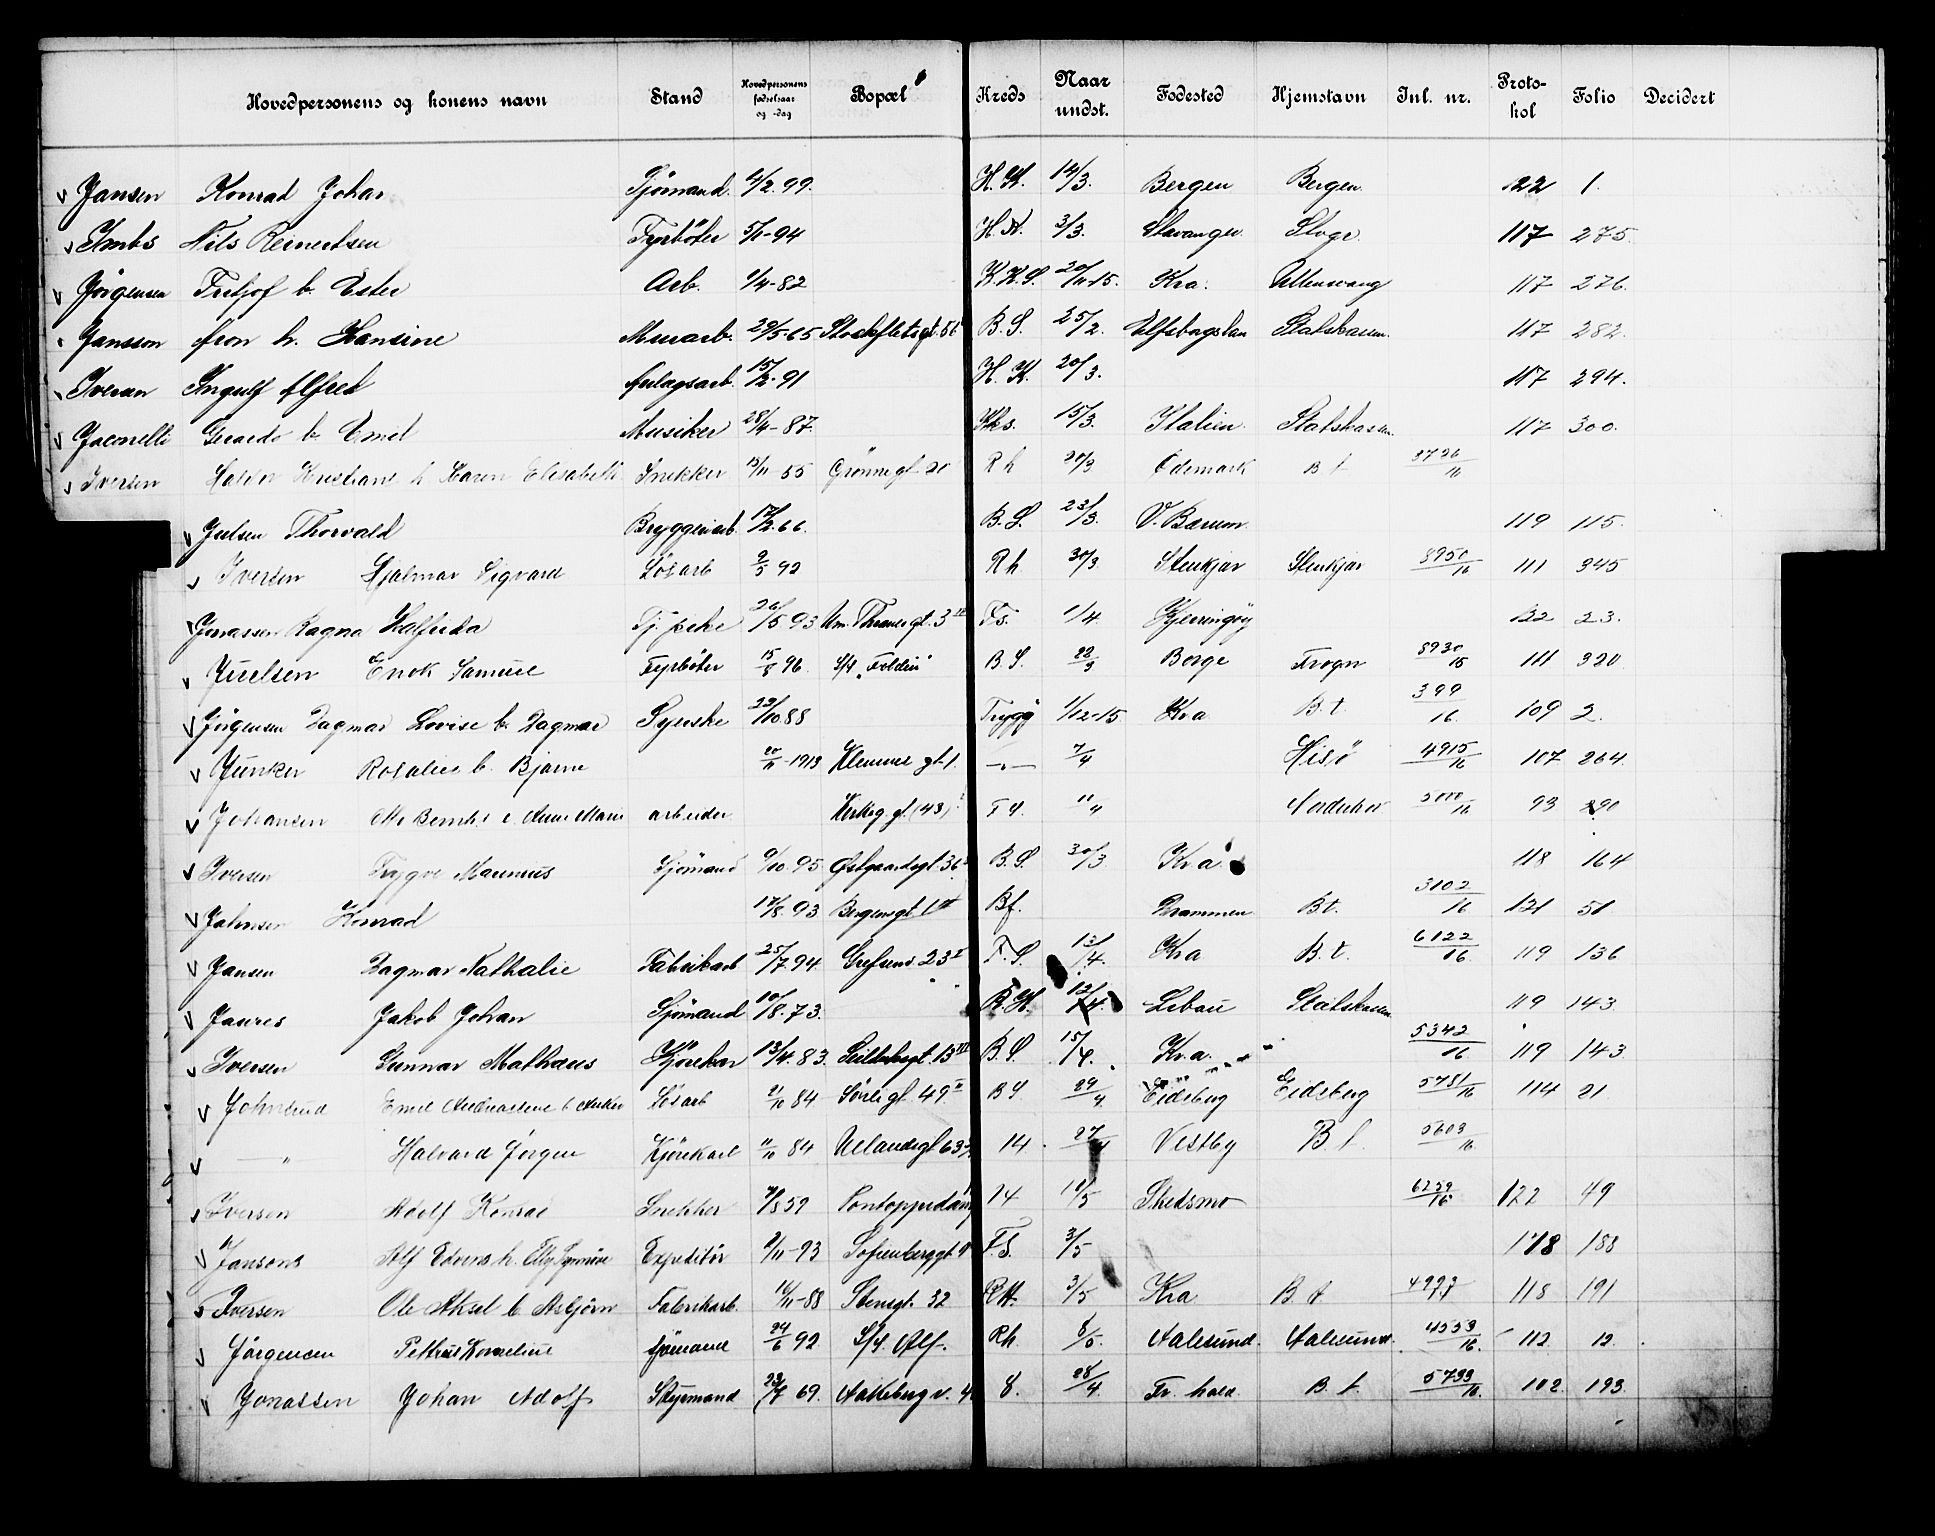 Hovedpersonens og konens navn Stand Hovedpersonens fødselsaar og -dag Bopæl Kreds Naar undst. Fødested Hjemstavn Inl. nr. Protokol Folio Decidert
Jansen Konrad Johan Sjömand. 4/2. 99. H. K. 14/3. Bergen Bergen 122 1.
Nils Reinertsen Fyrböter 5/1-94 H. K. 3/3. Stavanger 117 275.
Jörgensen Fritjof b. Ester Arb. 1/4-82 K. K. S. 20/11-15. Kra. Ullensvang 117 276.
Jansson Aron h. Hansine Murarb. 29/5-65 Stockfletsgt. 56 B. S. 25/2. Elfsborgslan Statskassen. 117 282.
Iversen Ingulf Alfred Anlagsarb. 15/2-91 H. K. 20/3. 117 294.
Jaconelli Gerardo b. Emil Musiker 28/4-87. 15/3. Italien Statskassen. 117 300.
Iversen Halvor Kristians h Karen Elisabeth Snekker 15/11-55 Grönnegt. 20 Rh 20/3 Ödemark B t 3726/16
Julsen Thorvald Bryggeriarb. 17/2. 66. B. S. 23/3. V. Bærum 119 115.
Iversen Hjalmar Sigvard Lösarb 2/3 92 Rh 30/3 Stenkjær Stenkjær 8950/16 111 345
Jonassen Ragna Halfrida Tj. pike 26/5. 93 Um. Thranesgt. 3 IV Fs. 1/4 Kjerringöy 122 23.
Juelsen Enok Samuel Fyrböter 15/8 96. S/S "Foldin" B. S. 22/3 Borge Frogn 8930/15 111 320
Jörgensen Dagmar Lovise b. Dagmar Syerske 23/10 88 Trygg 1/12-15. Kra B. t. 399/16. 109 2.
Junker Rosalie b. Bjarne 20/11-1913 Klemmes gt. 1. —"— 7/4 Hisö 4915/16 107 264.
Johansen Ole Bernh. e. Anne Marie arbeider Kirkeg. gt. (43) F S. 11/4 Norderhov 5000/16 93 290
Iversen Trygve Magnus Sjömand 9/10. 95. Østgaardsgt. 36 B. S. 30/3 Kra. 118 164
Johnsen Konrad 17/8. 93 Bergensgt. 1 Bf. Drammen B t. 3102/16 121 51.
Jansen Dagmar Nathalie Fabrikarb 25/7. 94. Grefsenv. 23 II F. S. 13/4. Kra B. t. 6122/16. 119 136
Jaures Jakob Johan Sjömand 10/8. 73. R. H. 12/4. Libau Statskassen 119 143.
Iversen Gunnar Mathæus Kjörekar 13/4. 83. Seilduksgt. 13 III B. S. 15/4. Kra. 5342/16 119 143.
Johnsrud Emil Andreassene b Anker Lösarb 21/10 84 Sörligt. 49 II B S 29/4. Eidsberg Eidsberg 5781/16 114 21
—"— Halvard Jörgen Kjörekarl 11/10 84 Uelandsgt 63 14. 27/4 Vestby B. t. 5603/16.
Iversen Adolf Konrad Snekker 4/8 59 Pontoppidansg 14 11/5 Skedsmo 6259/16 122 49
Jansons Alf Edvens h. Elly Synnöve Expeditör 2/11-93 Sofienberggt. F. S. 3/5 118 188
Iversen Ole Aksel b. Asbjörn Fabrikarb. 16/11-88 Stensgt. 32 R H. 3/5 Kra B. t. 4997 118 191
Jörgensen Petter Korneline sjömand 24/6 92. S/S. Alf. Rh 8/5. Aalesund. Aalesund. 4553/16. 112 12.
Jonassen Johan Adolf Styrmand 23/7 69. Aakeberg v. 4 8. 28/4. Fr. hald. B. t. 5733/16. 102 193.